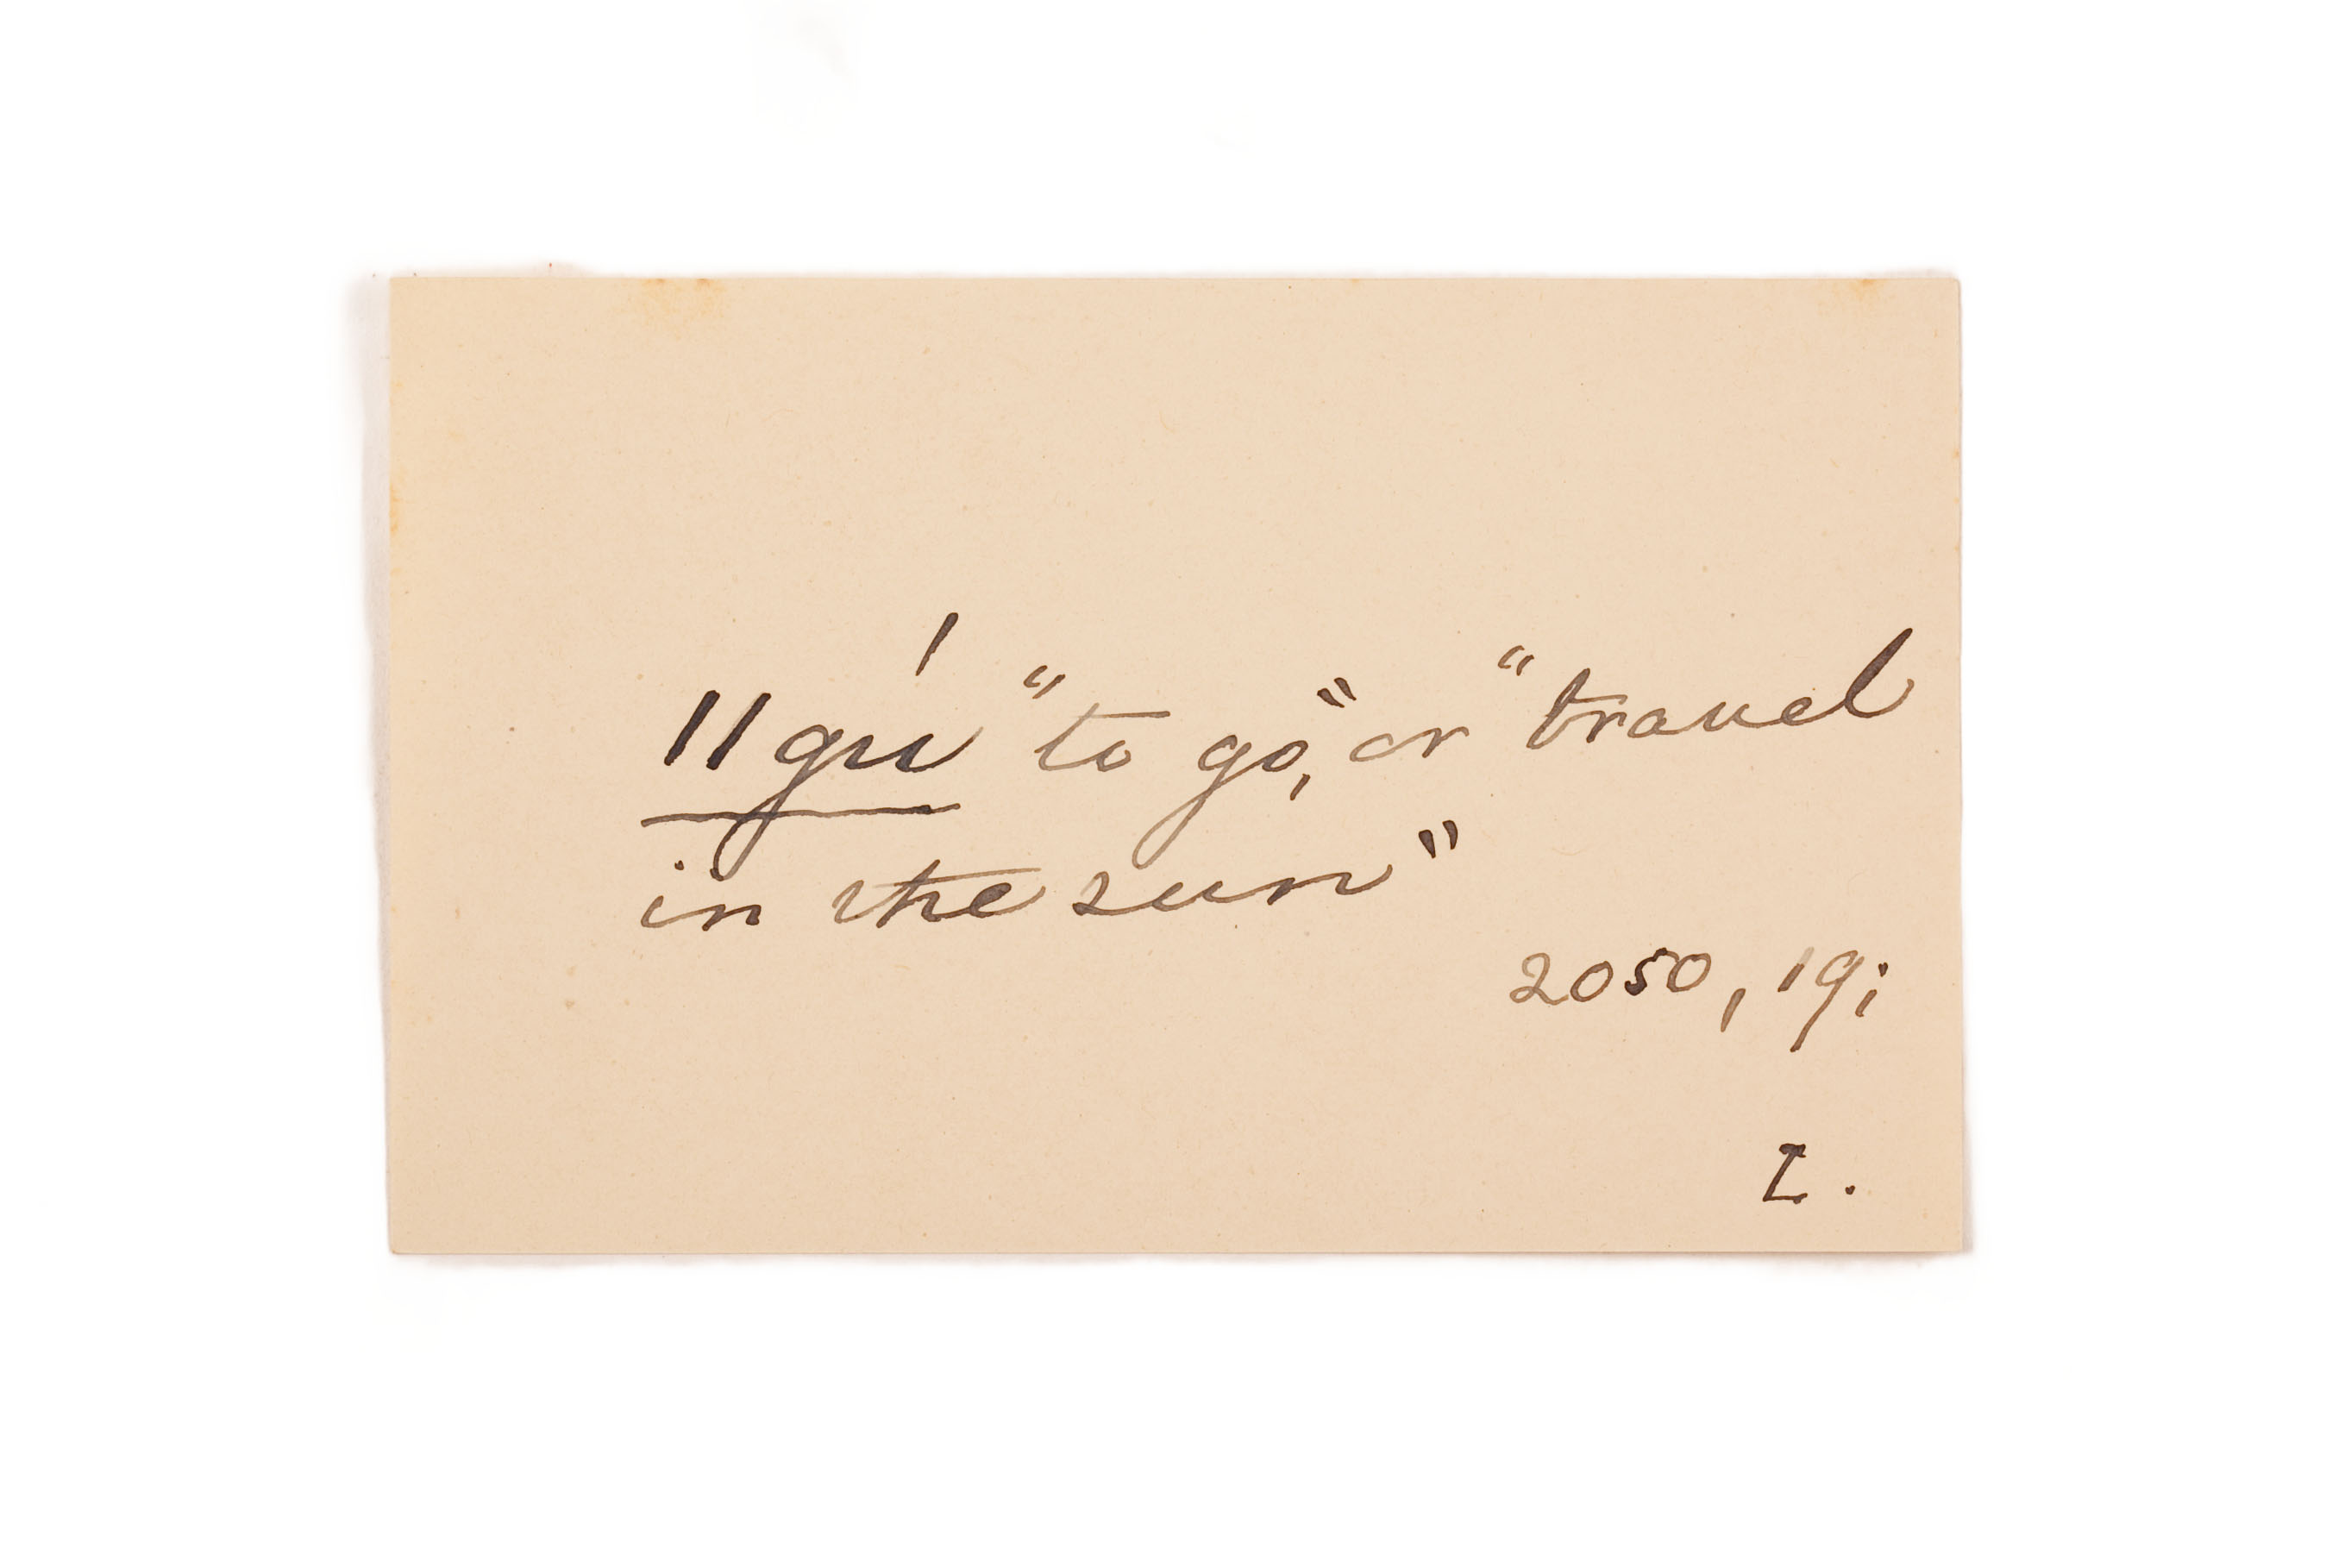 ǁgú "to go," or "travel
in the sun"
2050, 19;
L.